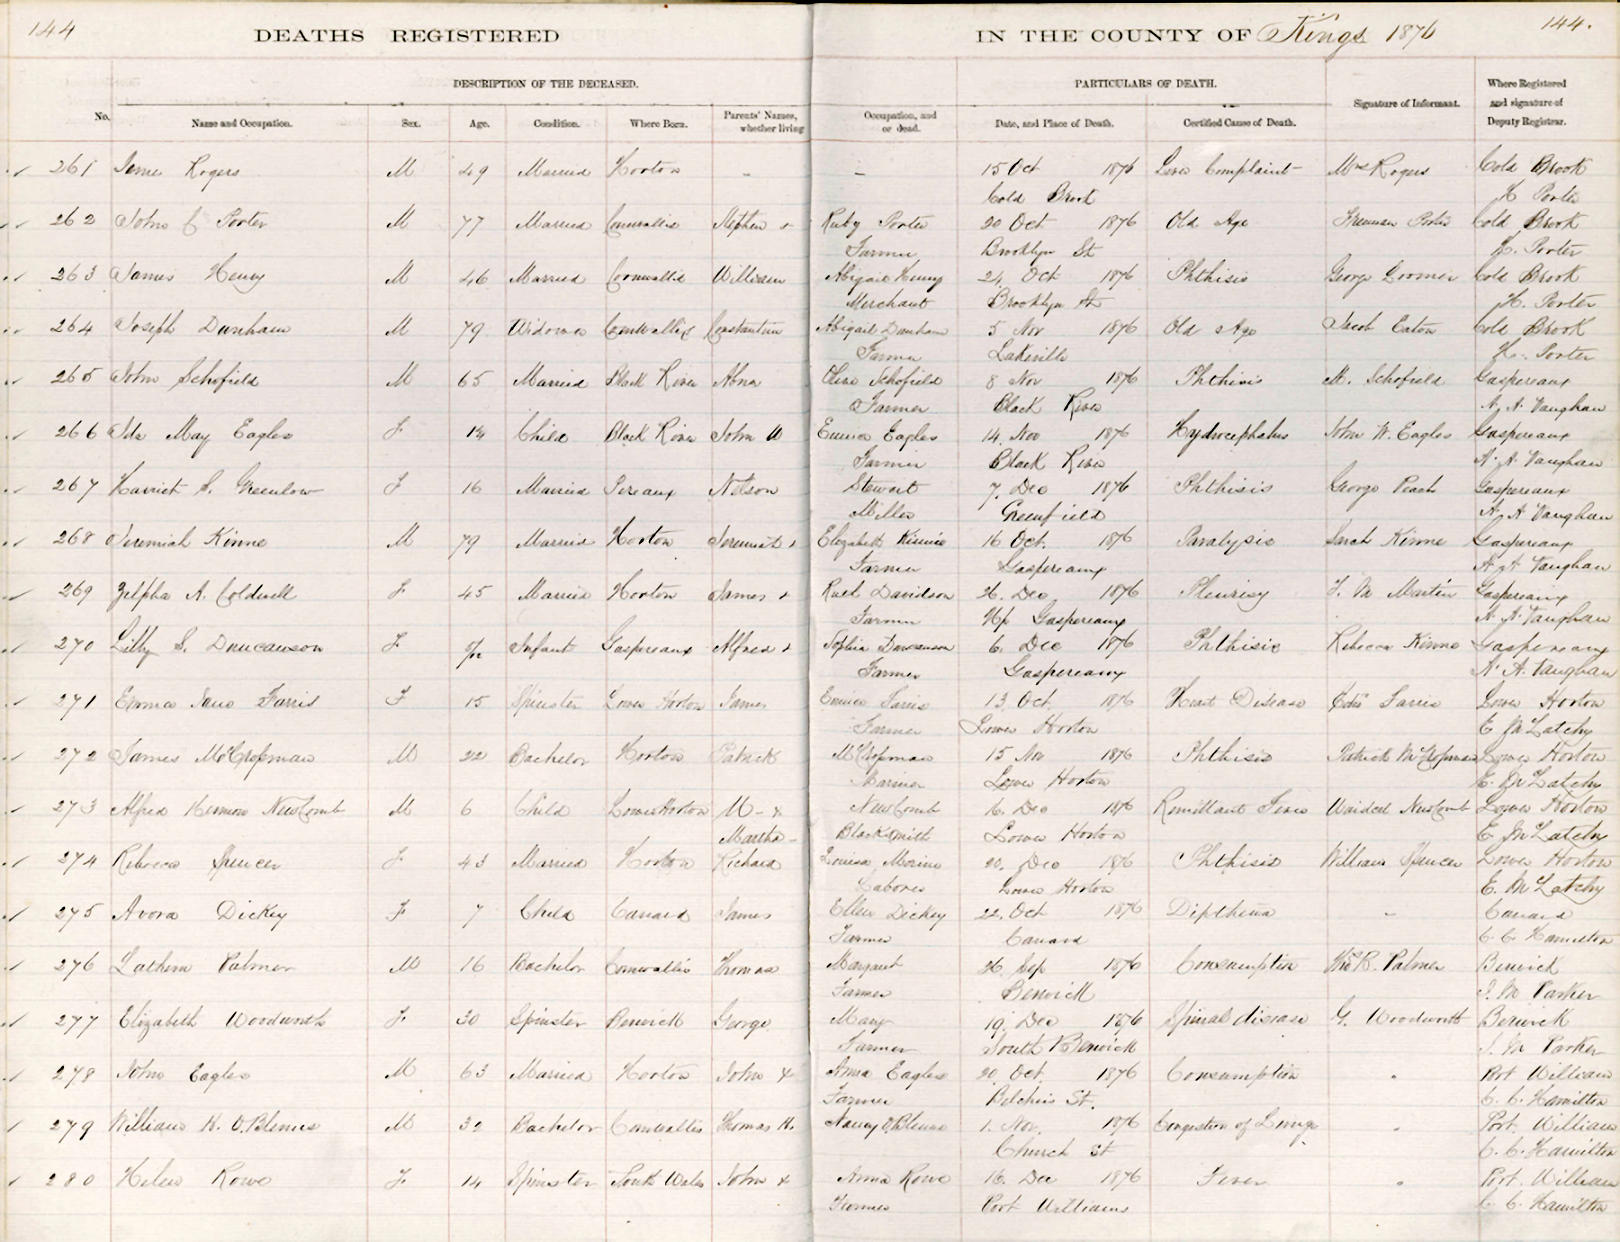 144
DEATHS REGISTERED IN THE COUNTY OF Kings 1876
144.
DESCRIPTION OF THE DECEASED. PARTICULARS OF DEATH.
No. Name and Occupation. Sex. Age. Condition. Where Born. Parents' Names, whether living Occupation, and or dead. Date, and Place of Death. Certified Cause of Death. Signature of Informant. Where Registered and signature of Deputy Registrar.
261 Rogers M 49 Married Horton - - 15 Oct 1876 Complaint Mrs Rogers Cold Brook
Cold Brook H. Porter
262 John Porter M 77 Married Cornwallis Stephen & Ruby Porter 20 Oct 1876 Old Age Freeman Porter Cold Brook
Farmer Brooklyn St H. Porter
263 James Henry M 46 Married Cornwallis William Abigail Henry 24. Oct 1876 Phthisis George Cold Brook
Merchant Brooklyn St H. Porter
264 Joseph Dunham M 79 Widower Cornwallis Constantine Abigail Dunham 5 Nov 1876 Old Age Jacob Eaton Cold Brook
Farmer Lakeville H. Porter
265 John Schofield M 65 Married Black River Abna Olive Schofield 8 Nov 1876 Phthisis M. Schofield Gaspereaux
Farmer Black River A. A. Vaughan
266 Ida May Eagles F 14 Child Black River John W Eunice Eagles 14. Nov 1876 Hydrocephalus John W. Eagles Gaspereaux
Farmer Black River A. A. Vaughan
267 Harriet S. Greenlow F 16 Married Pereaux Nelson Stewart 7. Dec 1876 Phthisis George Peach Gaspereaux
Miller Greenfield A. A. Vaughan
268 Jeremiah Kinne M 79 Married Horton Jeremiah & Elizabeth Kinnie 16 Oct. 1876 Paralysis Sarah Kinne Gaspereaux
Farmer Gaspereaux A. A. Vaughan
269 Zelpha A. Coldwell F 45 Married Horton James & Ruth Davidson 26. Dec 1876 Pleurisy J. M Martin Gaspereaux
Farmer Up Gaspereaux A. A. Vaughan
270 Lilly S. Duncanson F Infant Gaspereaux Alfred & Sophia Duncanson 6. Dec 1876 Phthisic Rebecca Kinne Gaspereaux
Farmer Gaspereaux A. A. Vaughan
271 Emma Jane Farris F 15 Spinster Lower Horton James Eunice Farris 13. Oct. 1876 Heart Disease Farris Lower Horton
Farmer Lower Horton E McLatchy
272 James M 22 Bachelor Horton Patrick 15 Nov 1876 Phthisis Patrick Lower Horton
Mariner Lower Horton E. McLatchy
273 Alfred Newcomb M 6 Child Lower Horton W- & Newcomb 16. Dec 1876 Remittant Fever Newcomb Lower Horton
Martha - Blacksmith Lower Horton E McLatchy
274 Rebecca Spencer F 43 Married Horton Richard Louisa 20. Dec 1876 Phthisis William Spencer Lower Horton
Laborer Lower Horton E. McLatchy
275 Avora Dickey F 7 Child Canard James Ellen Dickey 22. Oct 1876 Diptheria - Canard
Farmer Canard C. C. Hamilton
276 Palmer M 16 Bachelor Cornwallis Thomas Margaret 26. Sep 1876 Consumption Wm R. Palmer Berwick
Farmer Berwick J. M Parker
277 Elizabeth Woodworth F. 30 Spinster Berwick George Mary 19. Dec 1876 Spinal disease G. Woodworth Berwick
Farmer South Berwick J. M Parker
278 John Eagles M 63 Married Horton John & Anna Eagles 20. Oct. 1876 Consumption Port William
Farmer Belchers St. C. C. Hamilton
279 William H. O.Blenus M 32 Bachelor Cornwallis Thomas H. Nancy O,Blenus 1. Nov. 1876 Congestion of Lungs Port. William
Church St C. C. Hamilton
280 Helen Rowe F 14 Spinster South Wales John & Anna Rowe 16. Dec 1876 Fever Port. William
Farmer Port Williams C. C. Hamilton